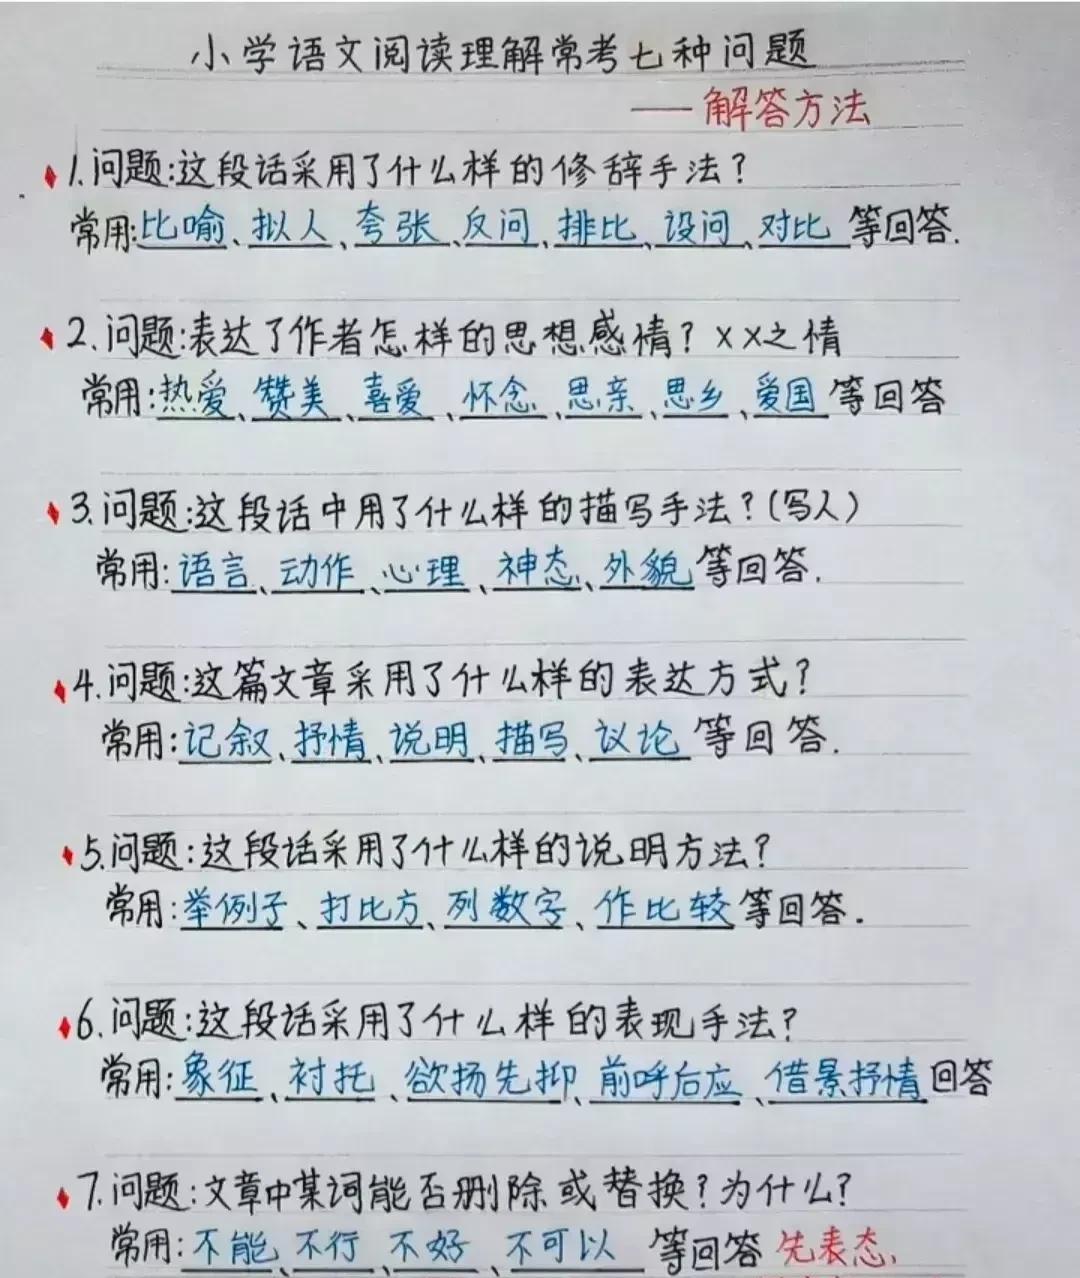 小学语文阅读理解常考七种问题
——解答方法
1.问题:这段话采用了什么样的修辞手法?
常用:比喻、拟人、夸张、反问、排比、设问、对比等回答.
2.问题:表达了作者怎样的思想感情?××之情
常用:热爱、赞美、喜爱、怀念、思亲、思乡、爱国等回答
3.问题:这段话中用了什么样的描写手法?(写人)
常用:语言、动作、心理、神态、外貌等回答.
4.问题:这篇文章采用了什么样的表达方式?
常用:记叙、抒情、说明、描写、议论等回答.
5.问题:这段话采用了什么样的说明方法?
常用:举例子、打比方、列数字、作比较等回答.
6.问题:这段话采用了什么样的表现手法?
常用:象征、衬托、欲扬先抑、前呼后应、借景抒情回答
7.问题:文章中某词能否删除或替换?为什么?
常用:不能、不行、不好、不可以等回答 先表态,